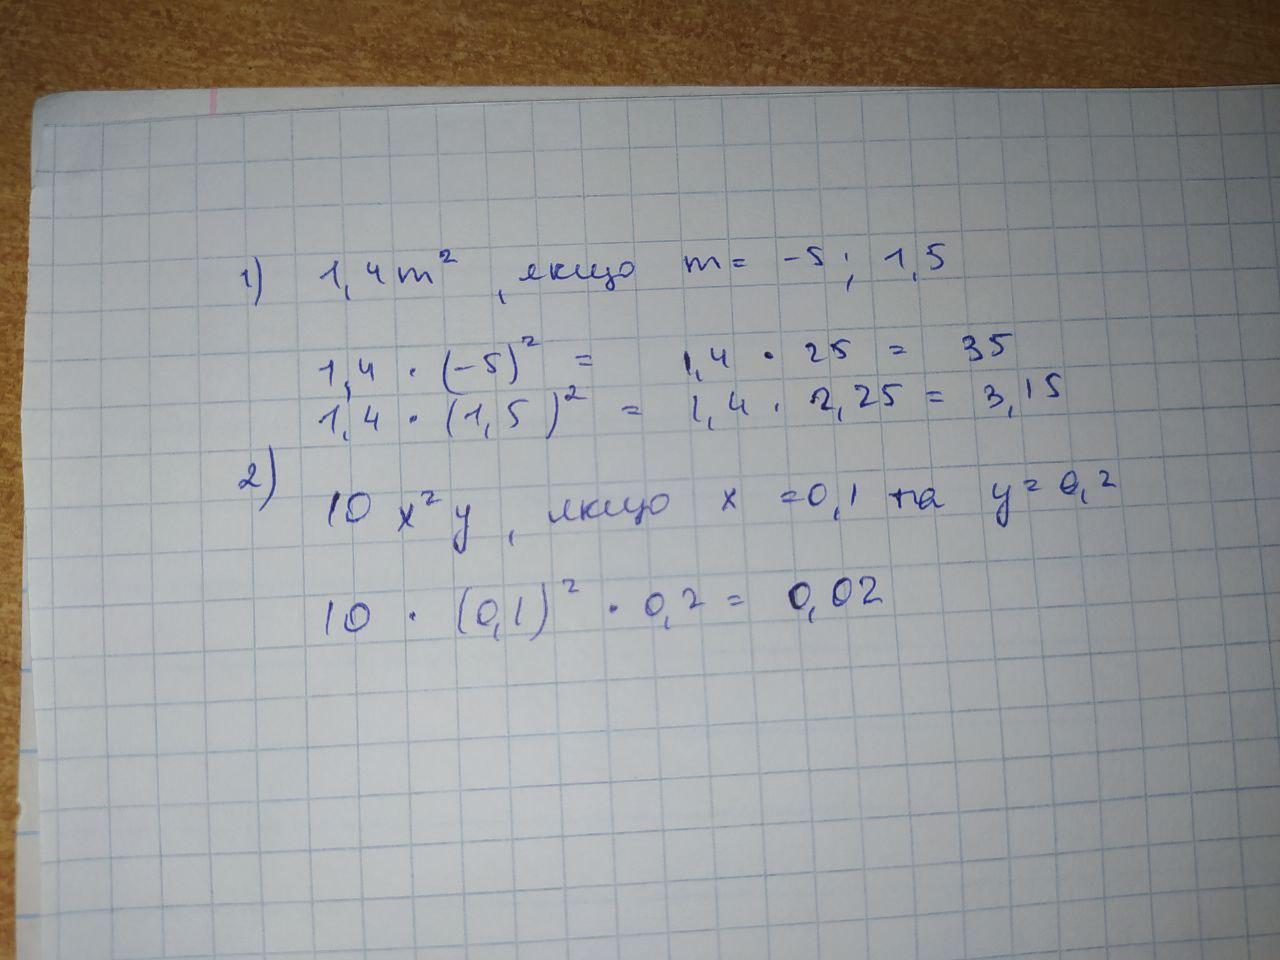 1) 1,4m², якщо m = -5; 1,5
1,4 · (-5)² = 1,4 · 25 = 35
1,4 · (1,5)² = 1,4 · 2,25 = 3,15
2) 10x²y, якщо x =0,1 та y = 0,2
10 · (0,1)² · 0,2 = 0,02